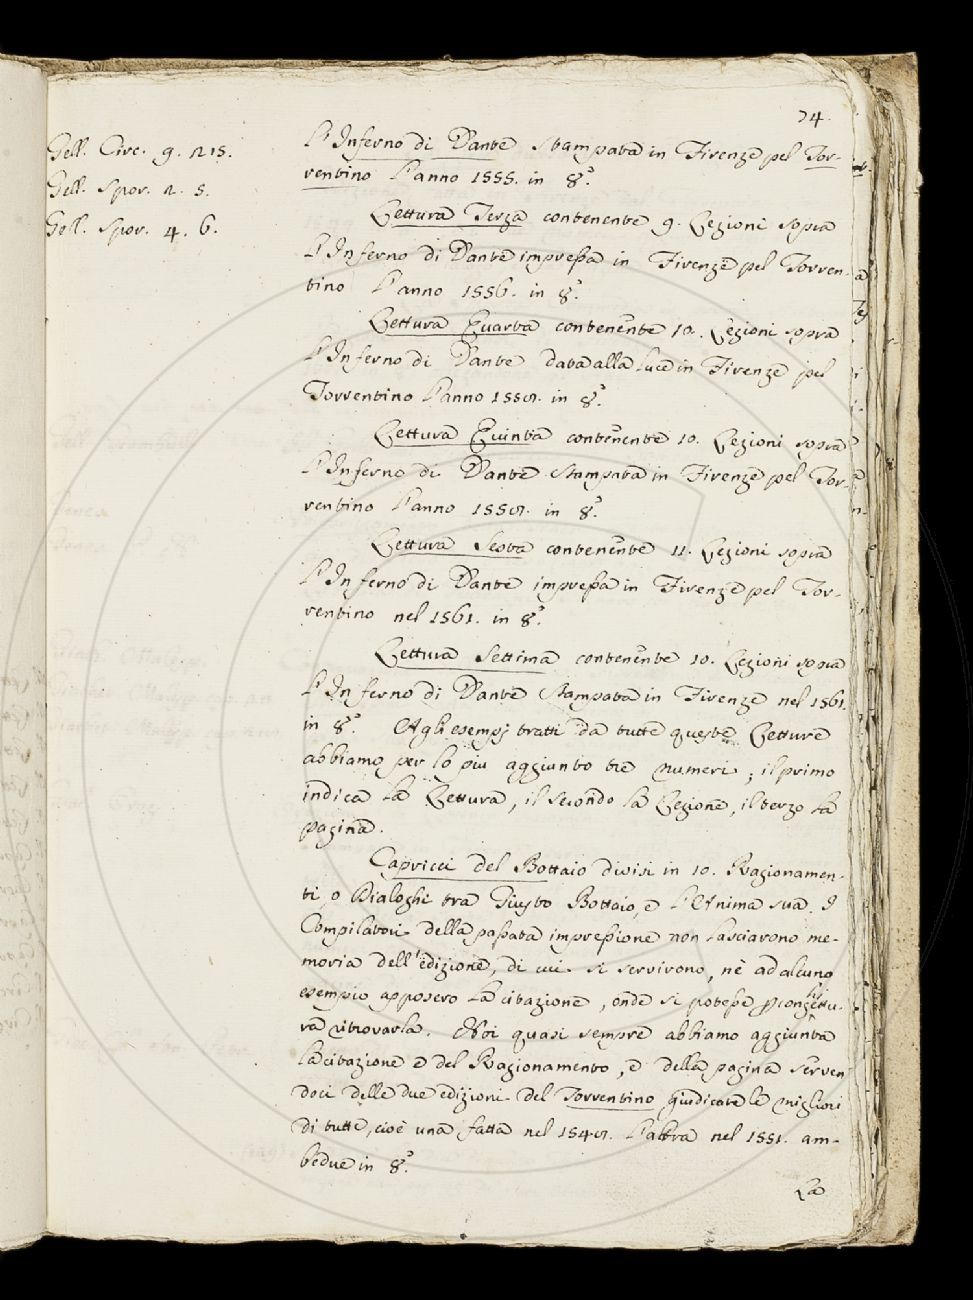 74.
Gell. Circ. 9. 215.
Gell. Spor. 2. 5.
Gell. Spor. 4. 6.
L'Inferno di Dante stampata in Firenze pel Tor-
rentino l'anno 1555. in 8°.
Lettura Terza contenente 9. Lezioni sopra
L'Inferno di Dante impressa in Firenze pel Torren-
tino l'anno 1556. in 8°.
Lettura Quarta contenente 10. Lezioni sopra
L'Inferno di Dante data alla luce in Firenze pel
Torrentino l'anno 1558. in 8°.
Lettura Quinta contenente 10. Lezioni sopra
L'Inferno di Dante stampata in Firenze pel Tor-
rentino l'anno 1558. in 8°.
Lettura Sesta contenente 11. Lezioni sopra
L'Inferno di Dante impressa in Firenze pel Tor-
rentino nel 1561. in 8°.
Lettura Settima contenente 10. Lezioni sopra
L'Inferno di Dante stampata in Firenze nel 1561.
in 8°. Agli esempj tratti da tutte queste Letture
abbiamo per lo piu aggiunto tre numeri; il primo
indica la Lettura, il secondo la Lezione, il terzo la
pagina.
Capricci del Bottaio divisi in 10. Ragionamen-
ti, o Dialoghi tra Giusto Bottaio, e l'Anima sua. I
Compilatori della passata impressione non lasciarono me-
moria dell'edizione, di cui si servirono, nè ad alcuno
esempio apposero la citazione, onde si potesse congettu-
ra ritrovarla. Noi quasi sempre abbiamo aggiunta
la citazione e del Ragionamento, e della pagina serven
doci delle due edizioni del Torrentino giudicate le migliori
di tutte, cioè una fatta nel 1548. l'altra nel 1551. am-
bedue in 8°.
La